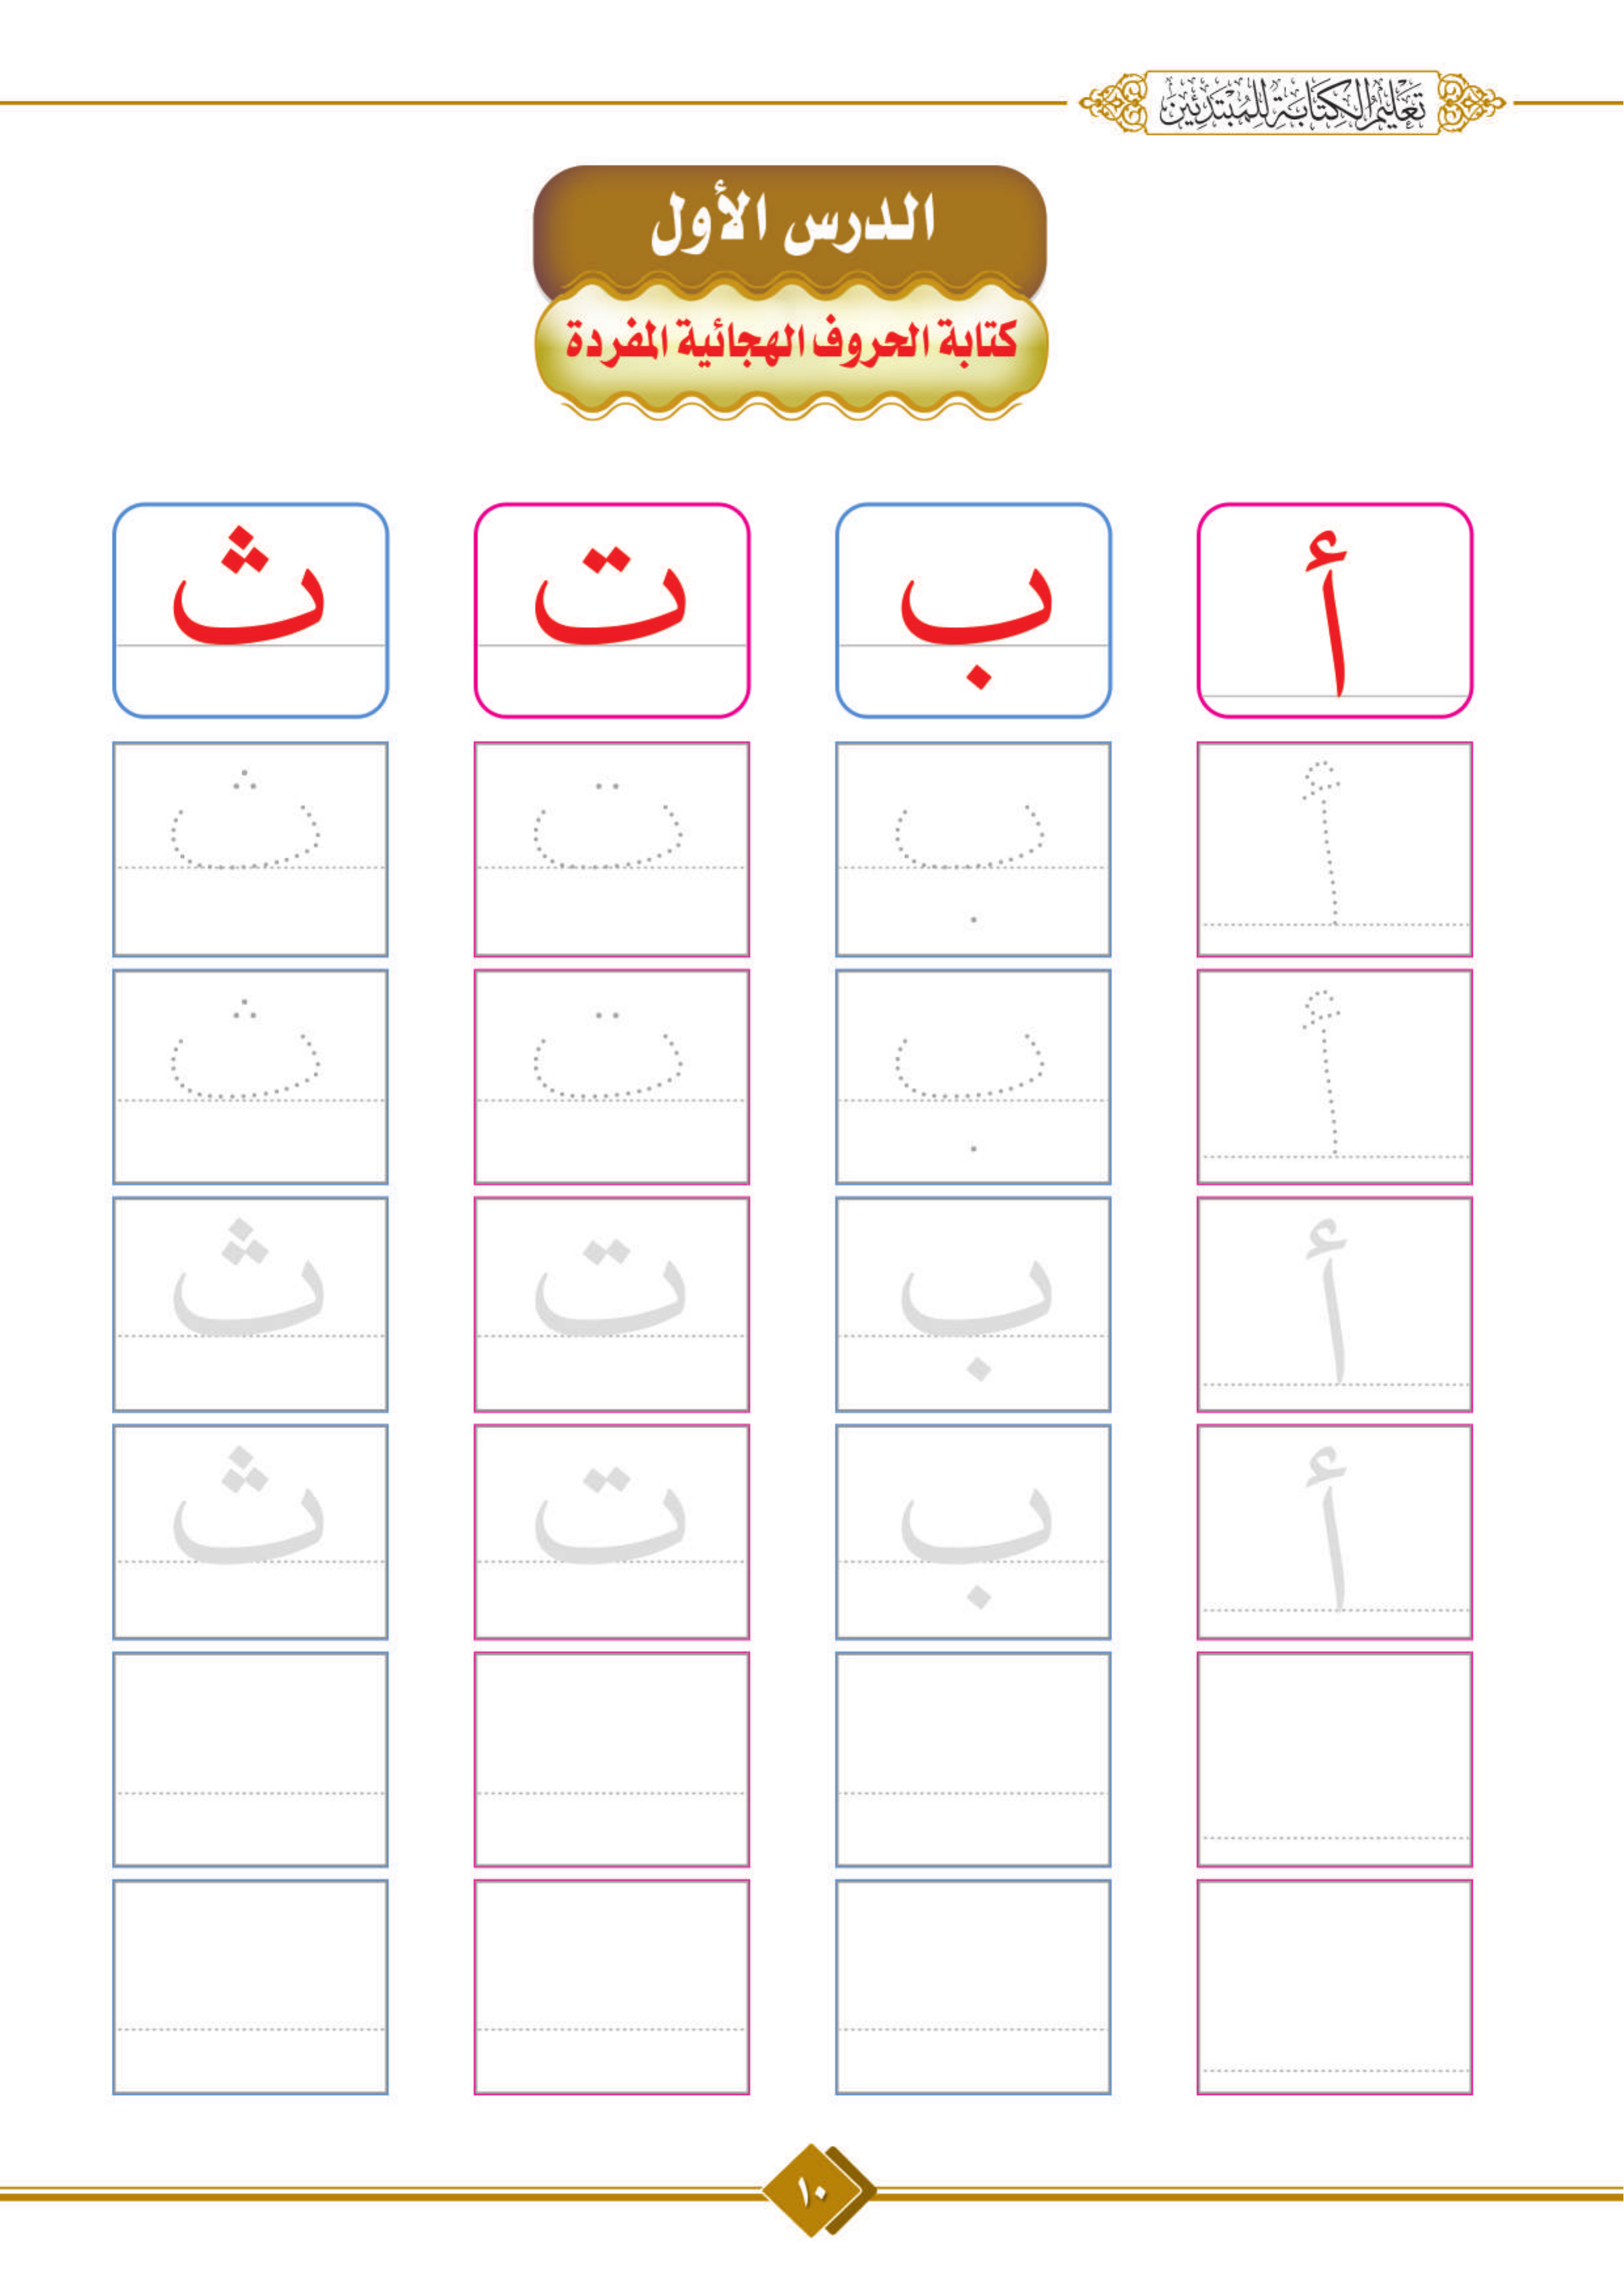 تَعْلِيمُ الْكِتَابَةِ لِلْمُبْتَدِئِينَ
الدرس الأول
كتابة الحروف الهجائية المفردة
أ ب ت ث
أ ب ت ث
أ ب ت ث
أ ب ت ث
أ ب ت ث
١٠